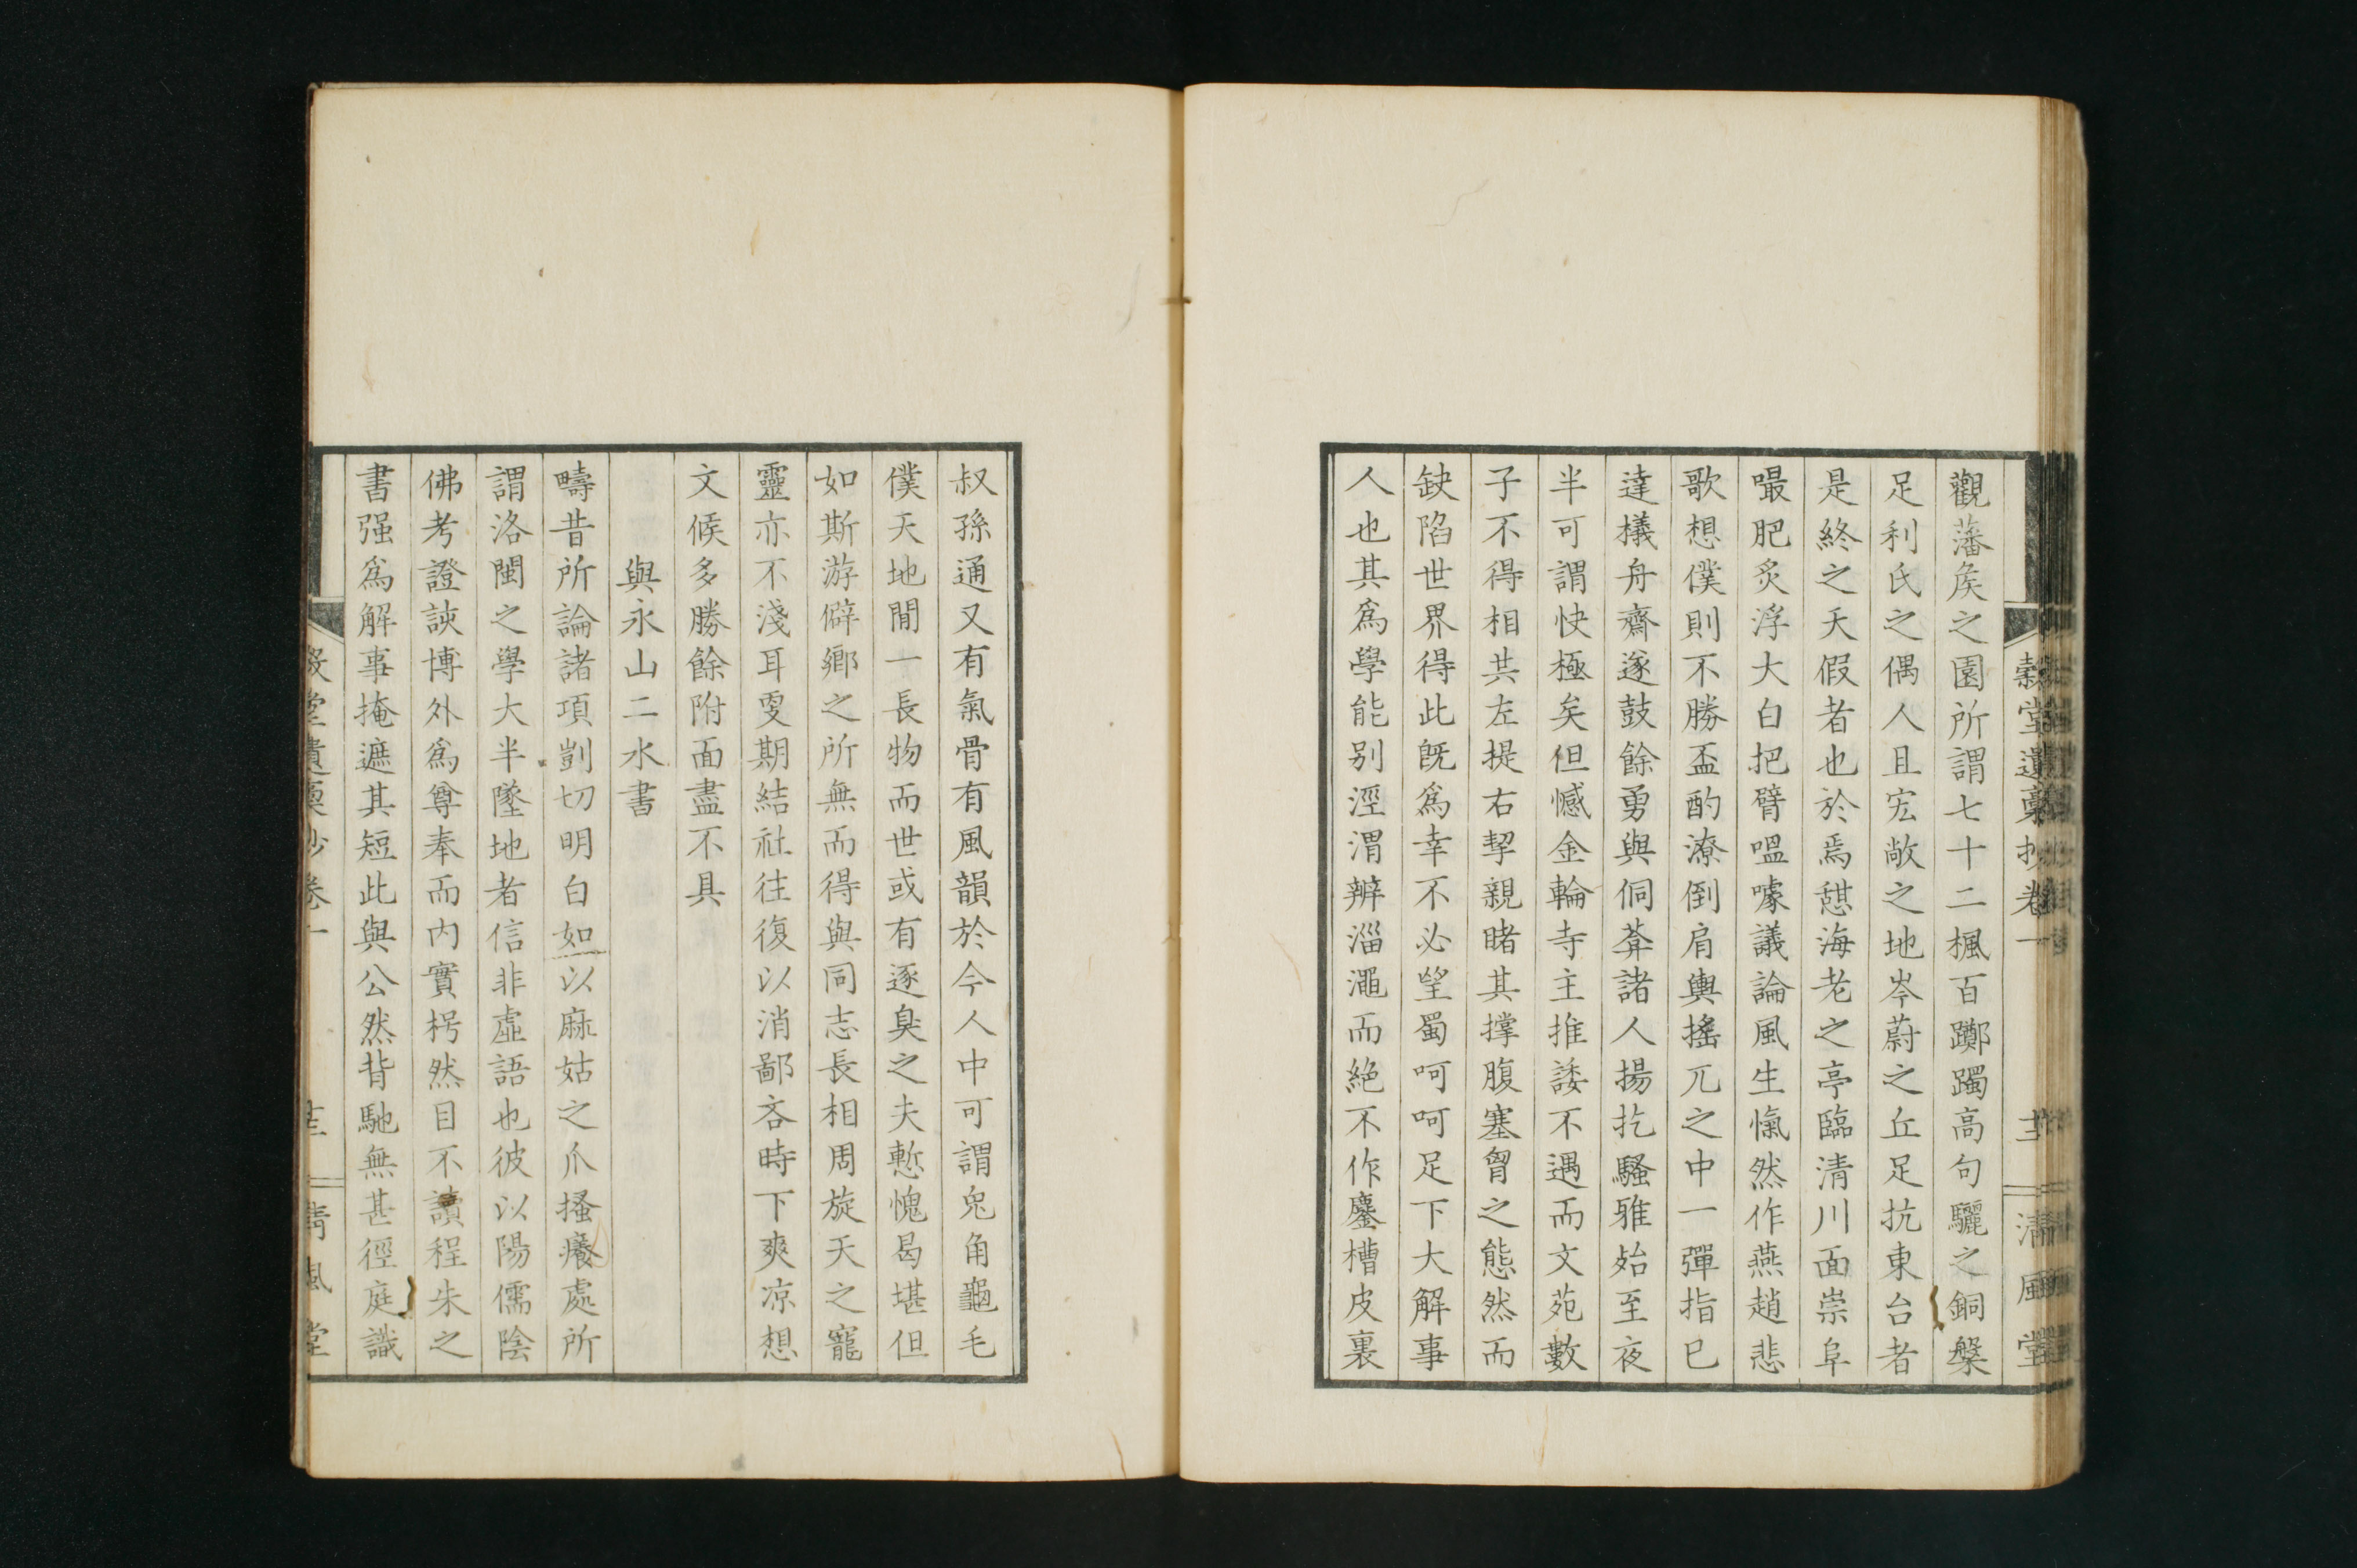 觀藩矦之園所謂七十二楓百躑躅高句驪之銅槃
足利氏之偶人且宏敞之地岑蔚之丘足抗東台者
是終之天假者也於焉憇海老之亭臨清川面崇阜
嘬肥炙浮大白把臂嗢噱議論風生愾然作燕趙悲
歌想僕則不勝盃酌潦倒肩輿搖兀之中一彈指已
達檥舟齋遂鼓餘勇與侗葊諸人揚扢騷雅始至夜
半可謂快極矣但憾金輪寺主推諉不遇而文苑數
子不得相共左提右挈親睹其撐腹塞胷之態然而
缺陷世界得此既爲幸不必望蜀呵呵足下大解事
人也其爲學能別涇渭辨淄澠而絕不作鏖槽皮裏
穀堂遺稾抄卷一
清風堂
叔孫通又有氣骨有風韻於今人中可謂兔角龜毛
僕天地間一長物而世或有逐臭之夫慙愧曷堪但
如斯游僻鄉之所無而得與同志長相周旋天之寵
靈亦不淺耳雯期結社往復以消鄙吝時下爽凉想
文候多勝餘附面盡不具
與永山二水書
疇昔所論諸項剴切明白如以麻姑之爪搔癢處所
謂洛閩之學大半墜地者信非虛語也彼以陽儒陰
佛考證誇博外爲尊奉而內實枵然目不讀程朱之
書强爲解事掩遮其短此與公然背馳無甚徑庭識